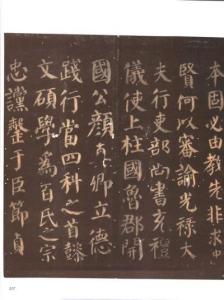 本固必由教先非求中
賢何以審諭光祿大
夫行吏部尚書充禮
儀使上柱國魯郡開
國公顏真卿立德
踐行當四科之首懿
文碩學為百氏之宗
忠讜罄于臣節貞